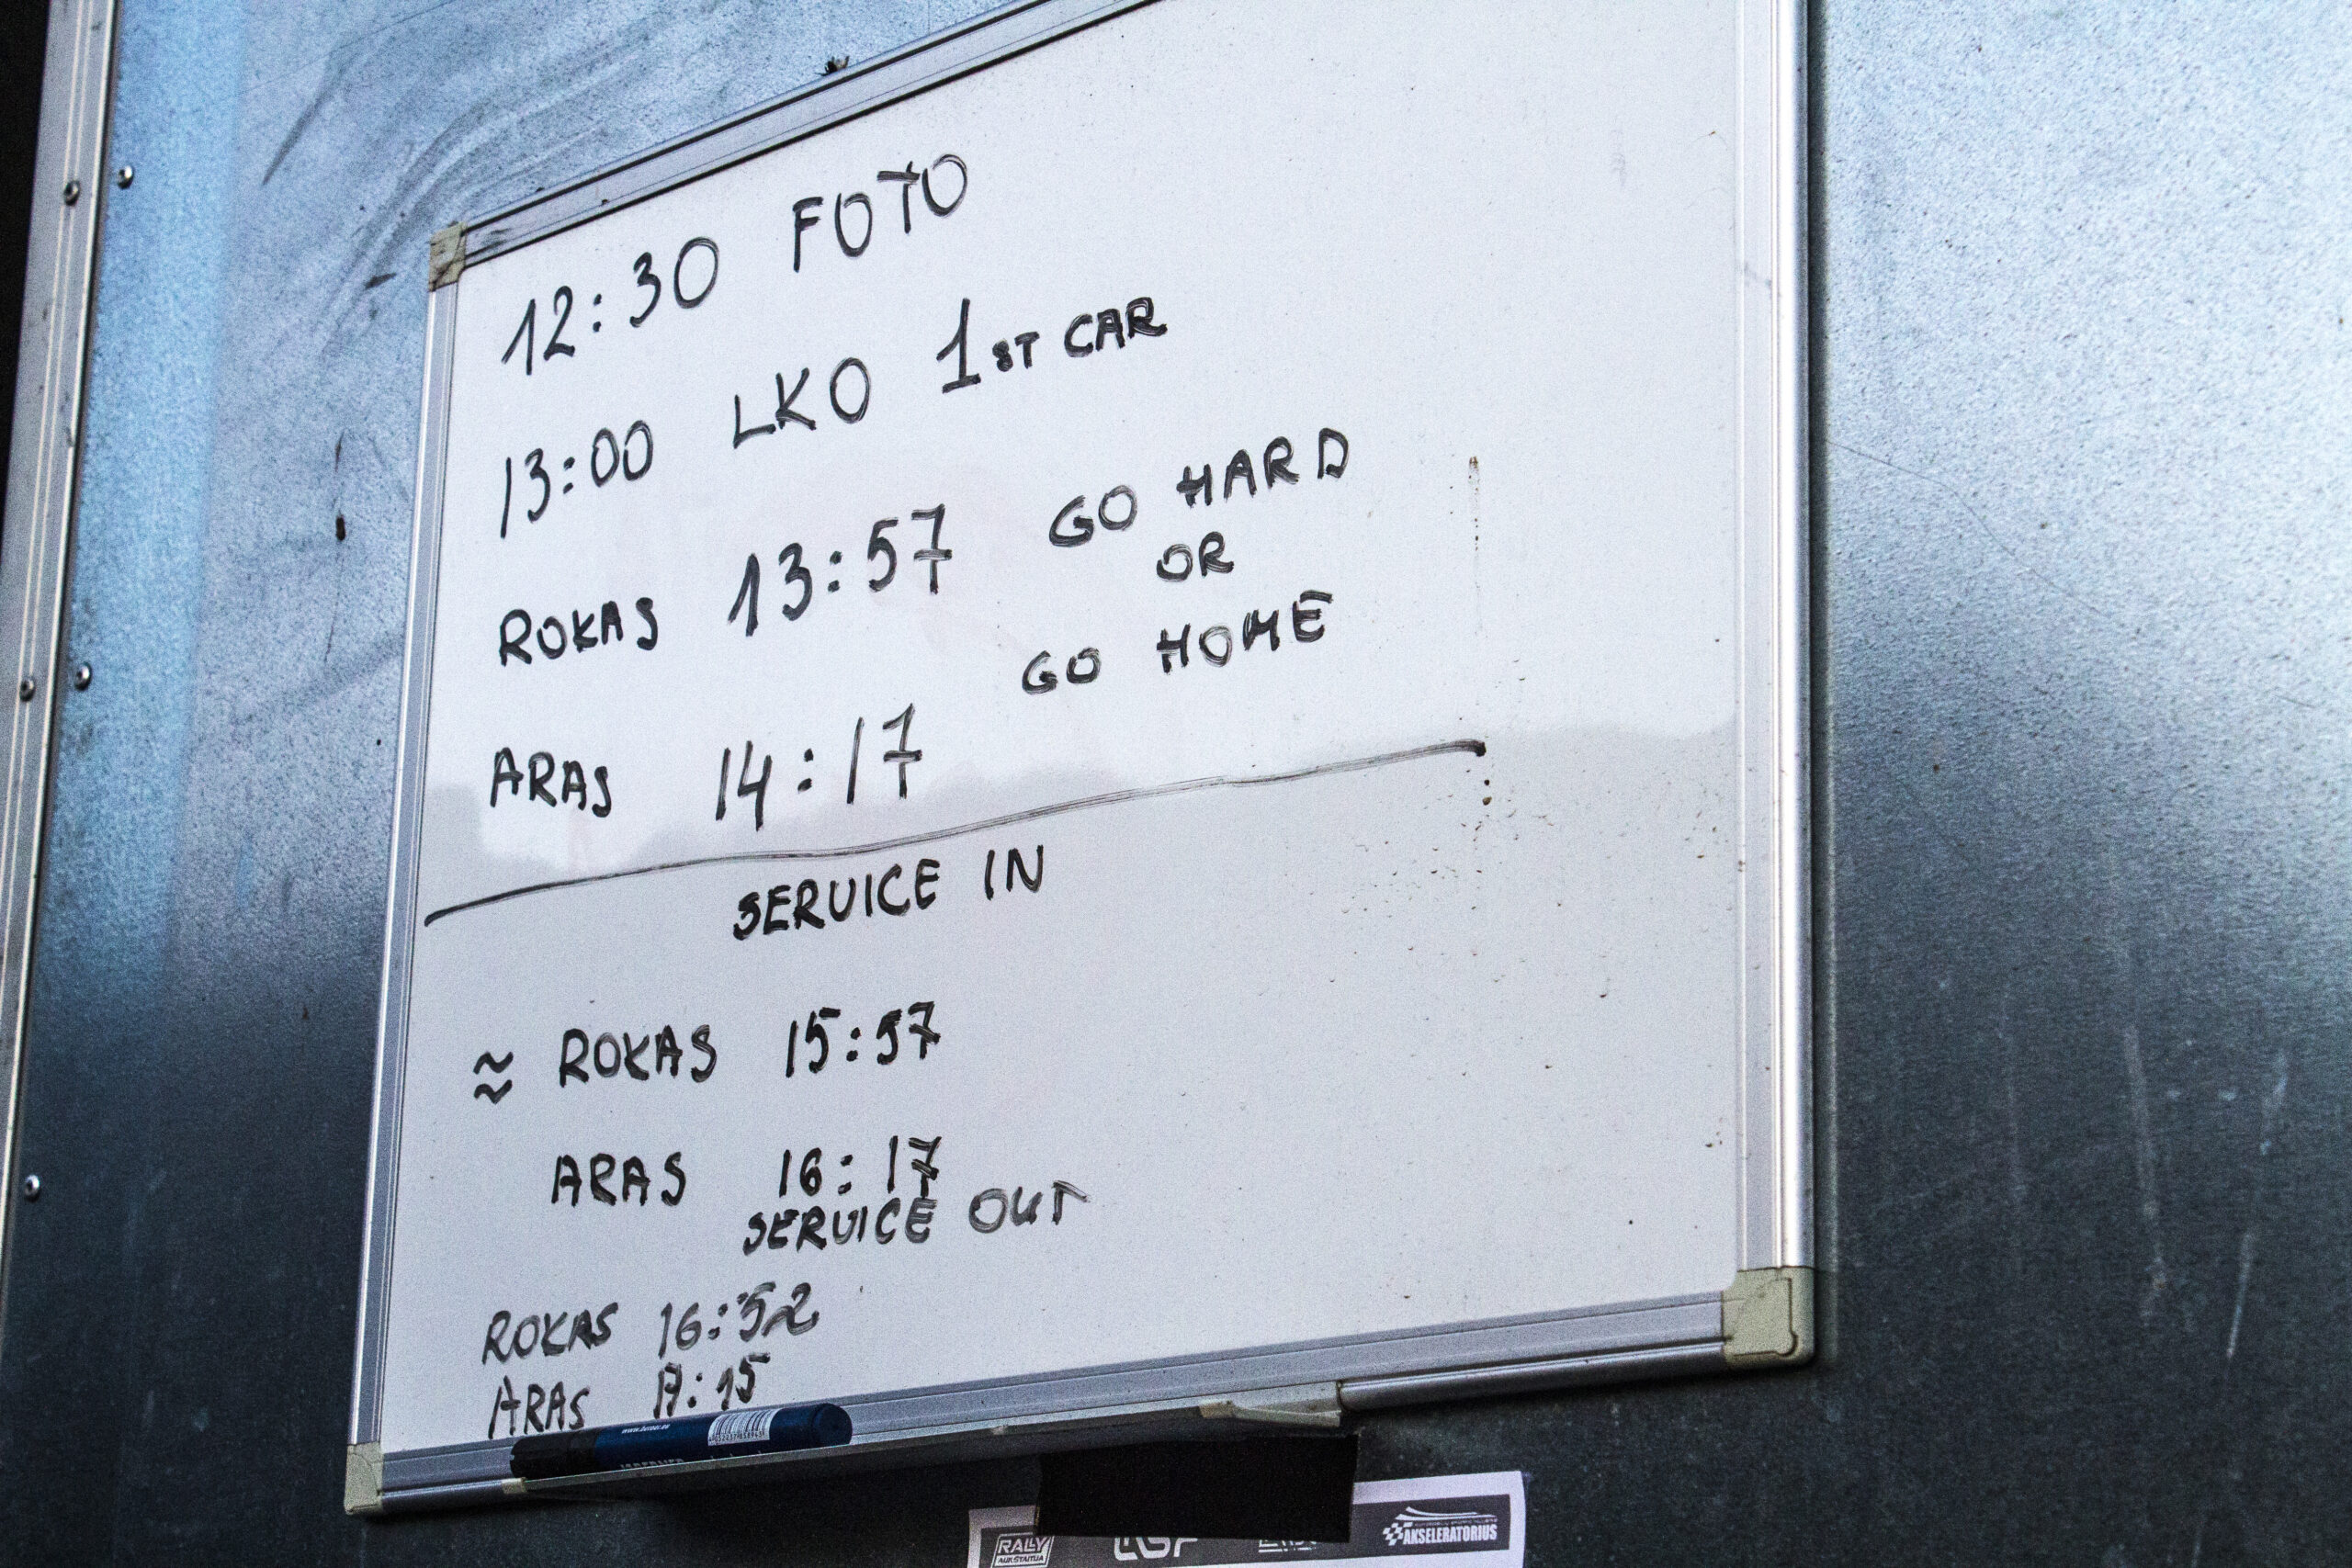 12:30 FOTO
13:00 LKO 1ST CAR
ROKAS 13:57 GO HARD
OR
GO HOME
ARAS 14:17
SERVICE IN
≈ ROKAS 15:57
ARAS 16:17
SERVICE OUT
ROKAS 16:52
ARAS 17:15
RALLY
AUKŠTAITIJA
AKSELERATORIUS